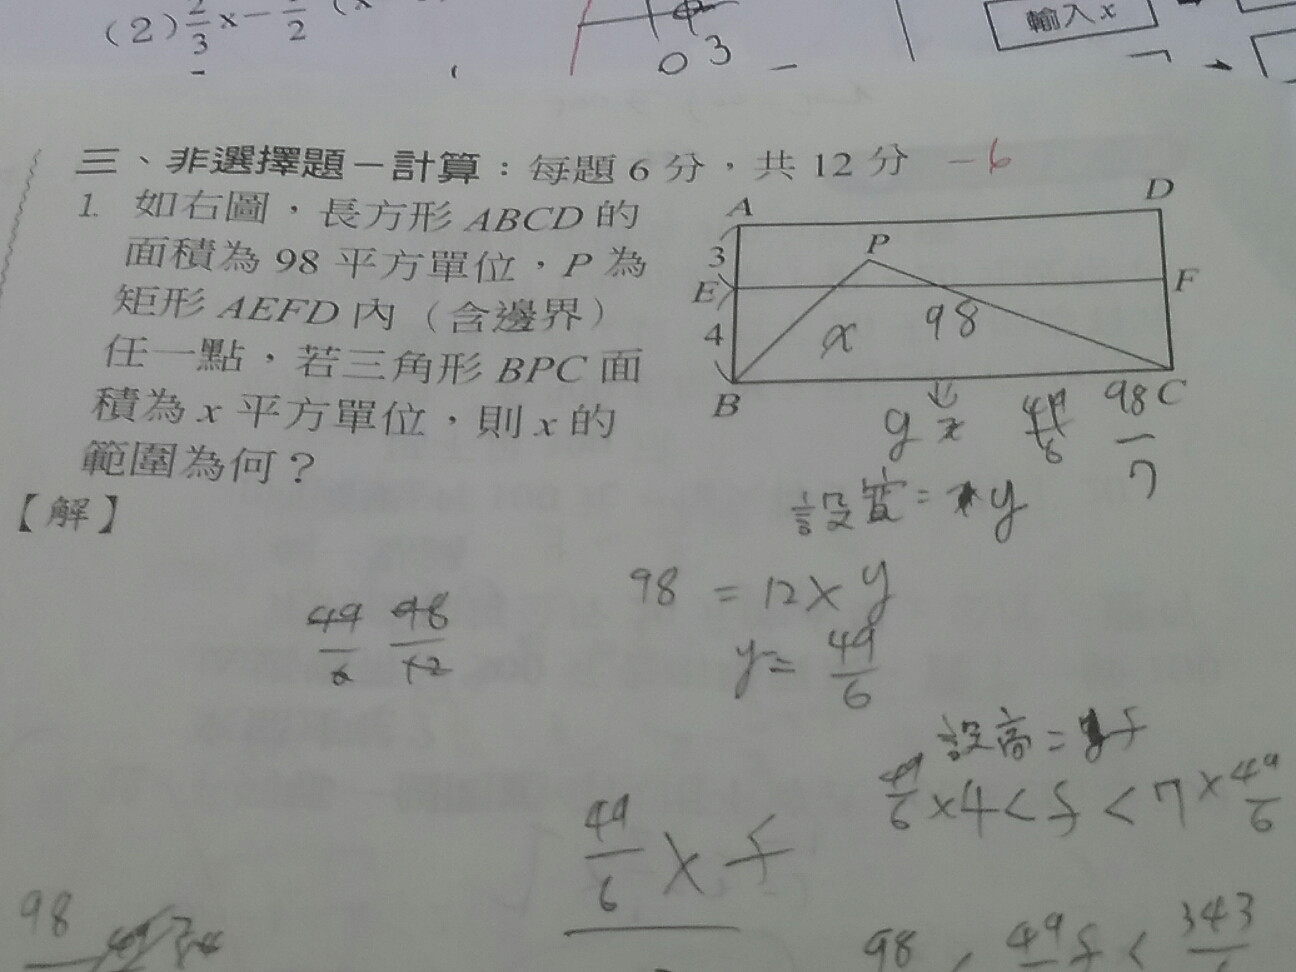 (2) 2/3 x - /2 (x
0 3
輸入 x
三、非選擇題－計算：每題 6 分，共 12 分 -6
1. 如右圖，長方形 ABCD 的
面積為 98 平方單位，P 為
矩形 AEFD 內（含邊界）
任一點，若三角形 BPC 面
積為 x 平方單位，則 x 的
範圍為何？
A D
3 P
E F
4 x 98
B C
y 98/7
【解】
設寬 = y
98 = 12 x y
49/6 98/12
y = 49/6
設高 = f
49/6 x 4 < f < 7 x 49/6
49/6 x f
98
98 < 49 f < 343